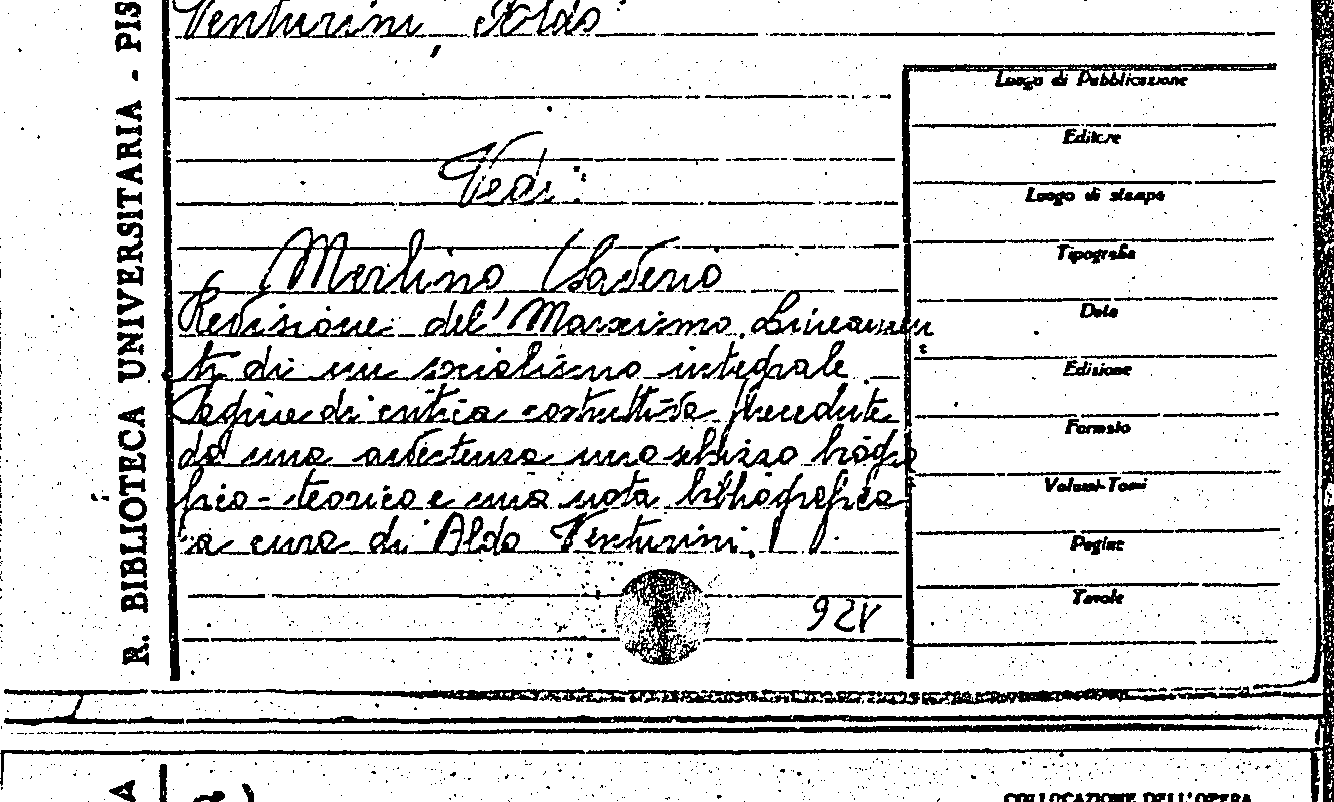 Venturini, Aldo
R. BIBLIOTECA UNIVERSITARIA - PIS
Vedi:
Merlino Saverio
Revisione del' Marxismo Lineamen
ti di un socialismo integrale
Pagine di critica costruttiva precedute
da una avvertenza uno schizzo biogra
fico-teorico e una nota bibliografica
a cura di Aldo Venturini.
Luogo di Pubblicazione
Editore
Luogo di stampa
Tipografia
Data
Edizione
Formato
Volumi-Tomi
Pagine
Tavole
A
COLLOCAZIONE DELL'OPERA